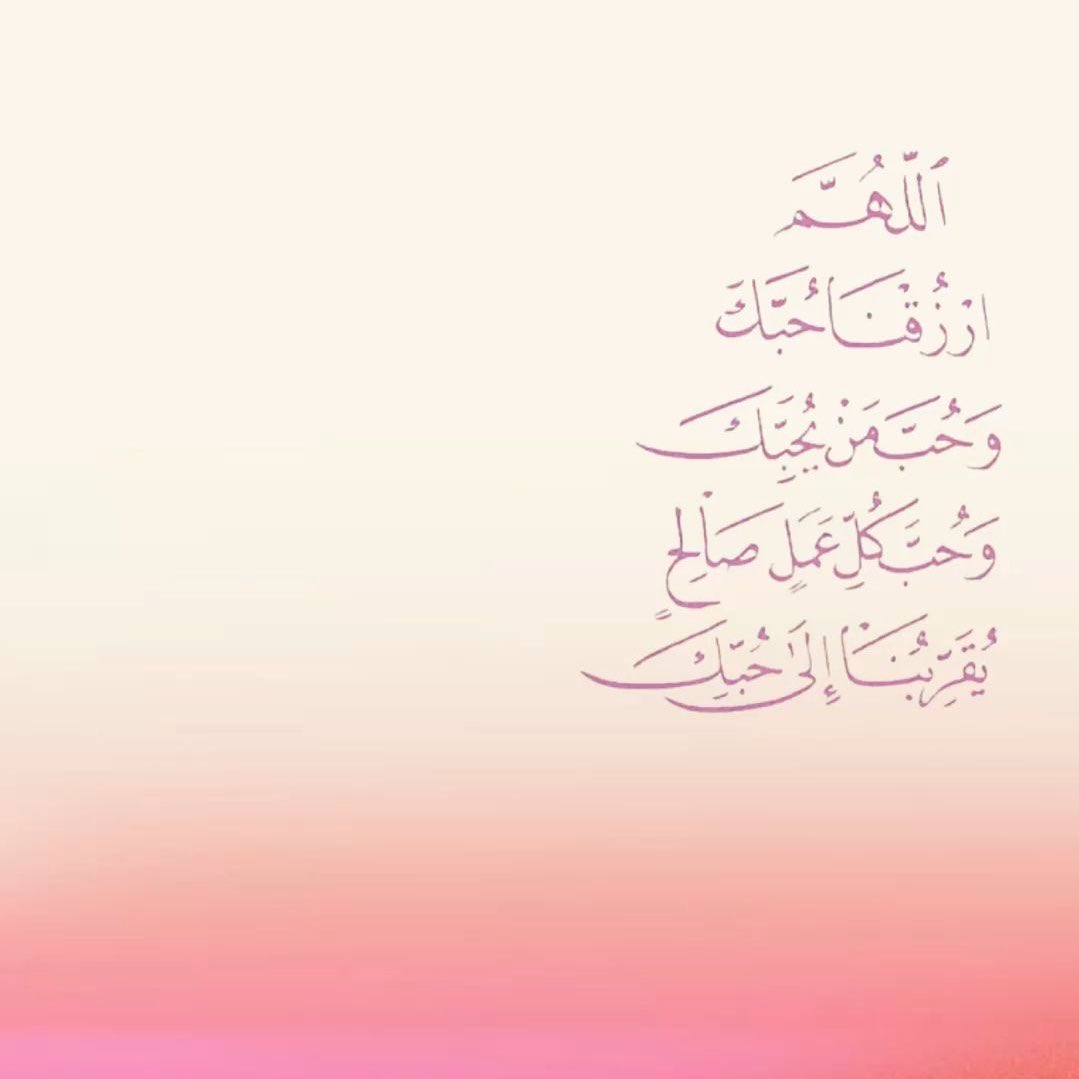 ٱللّٰهُمَّ
ارْزُقْنَا حُبَّكَ
وَحُبَّ مَنْ يُحِبُّكَ
وَحُبَّ كُلِّ عَمَلٍ صَالِحٍ
يُقَرِّبُنَا إِلَىٰ حُبِّكَ